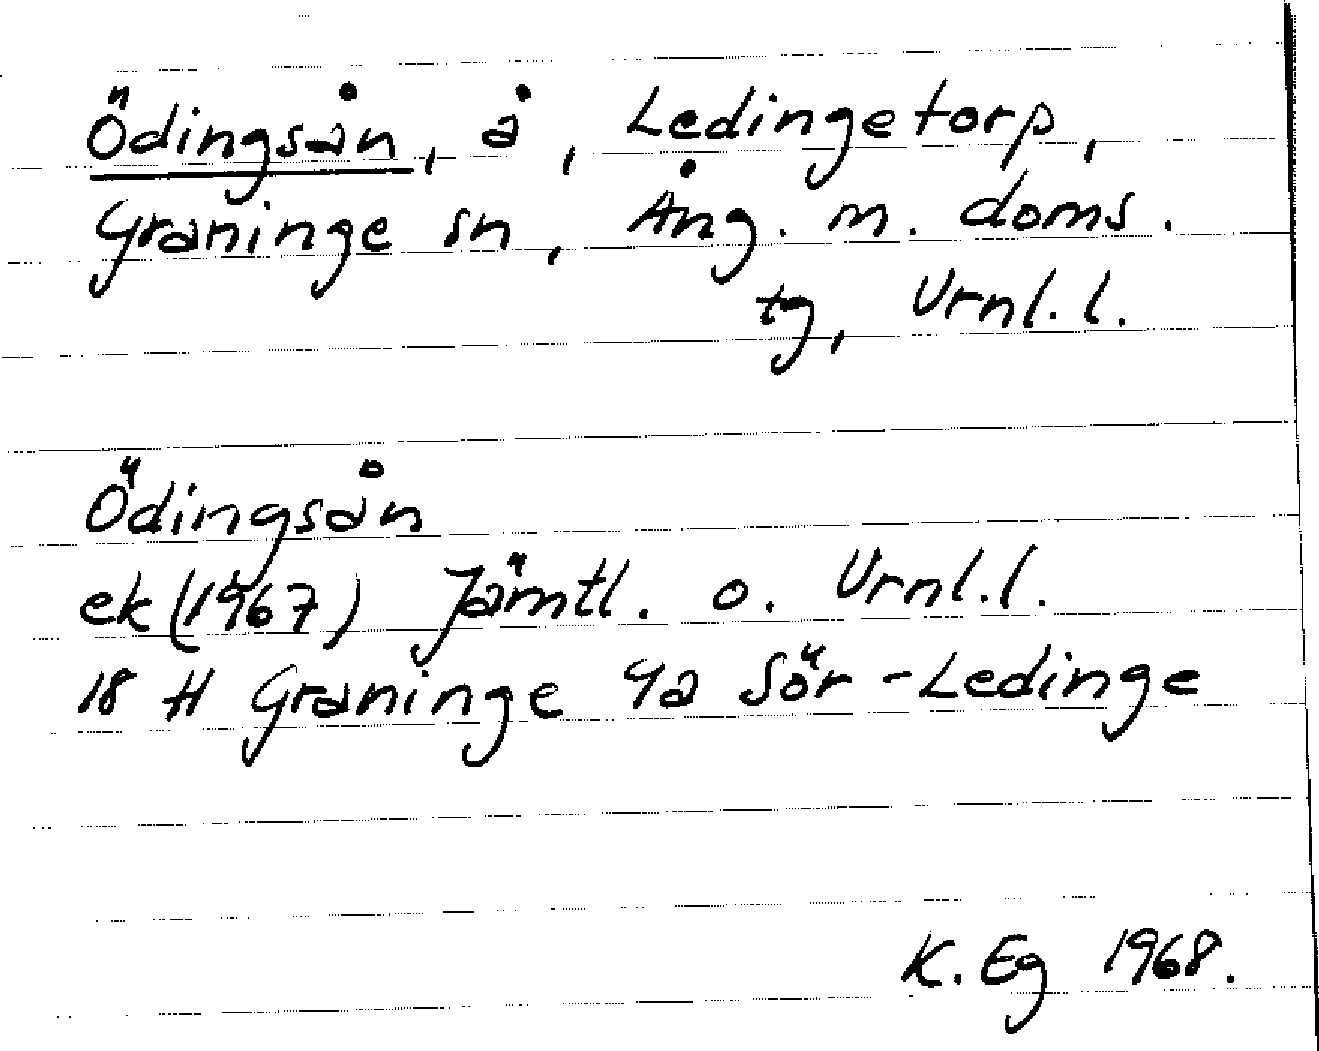 Ödingsån, å, Ledingetorp,
Graninge sn, Ång. m. doms.
tg, Vrnl.l.
Ödingsån
ek (1967) Jämtl. o. Vrnl.l.
18 H Graninge 4a Sör-Ledinge
K. Eg 1968.